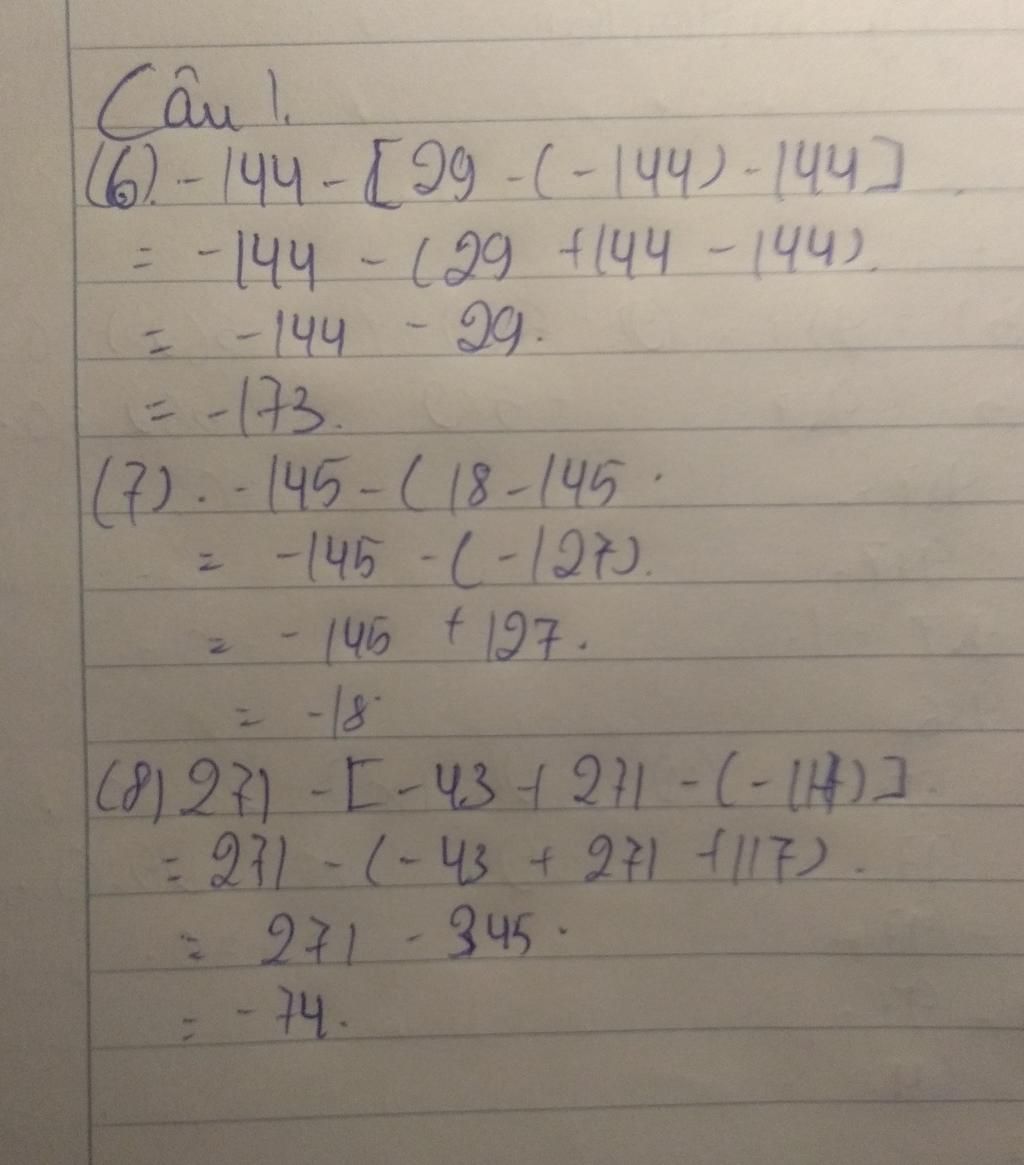 Câu 1.
(6). -144 - [29 - (-144) - 144]
= -144 - (29 + 144 - 144).
= -144 - 29.
= -173.
(7). -145 - (18 - 145.
= -145 - (-127).
= -145 + 127.
= -18.
(8) 271 - [-43 + 271 - (-117)].
= 271 - (-43 + 271 + 117).
= 271 - 345.
= -74.